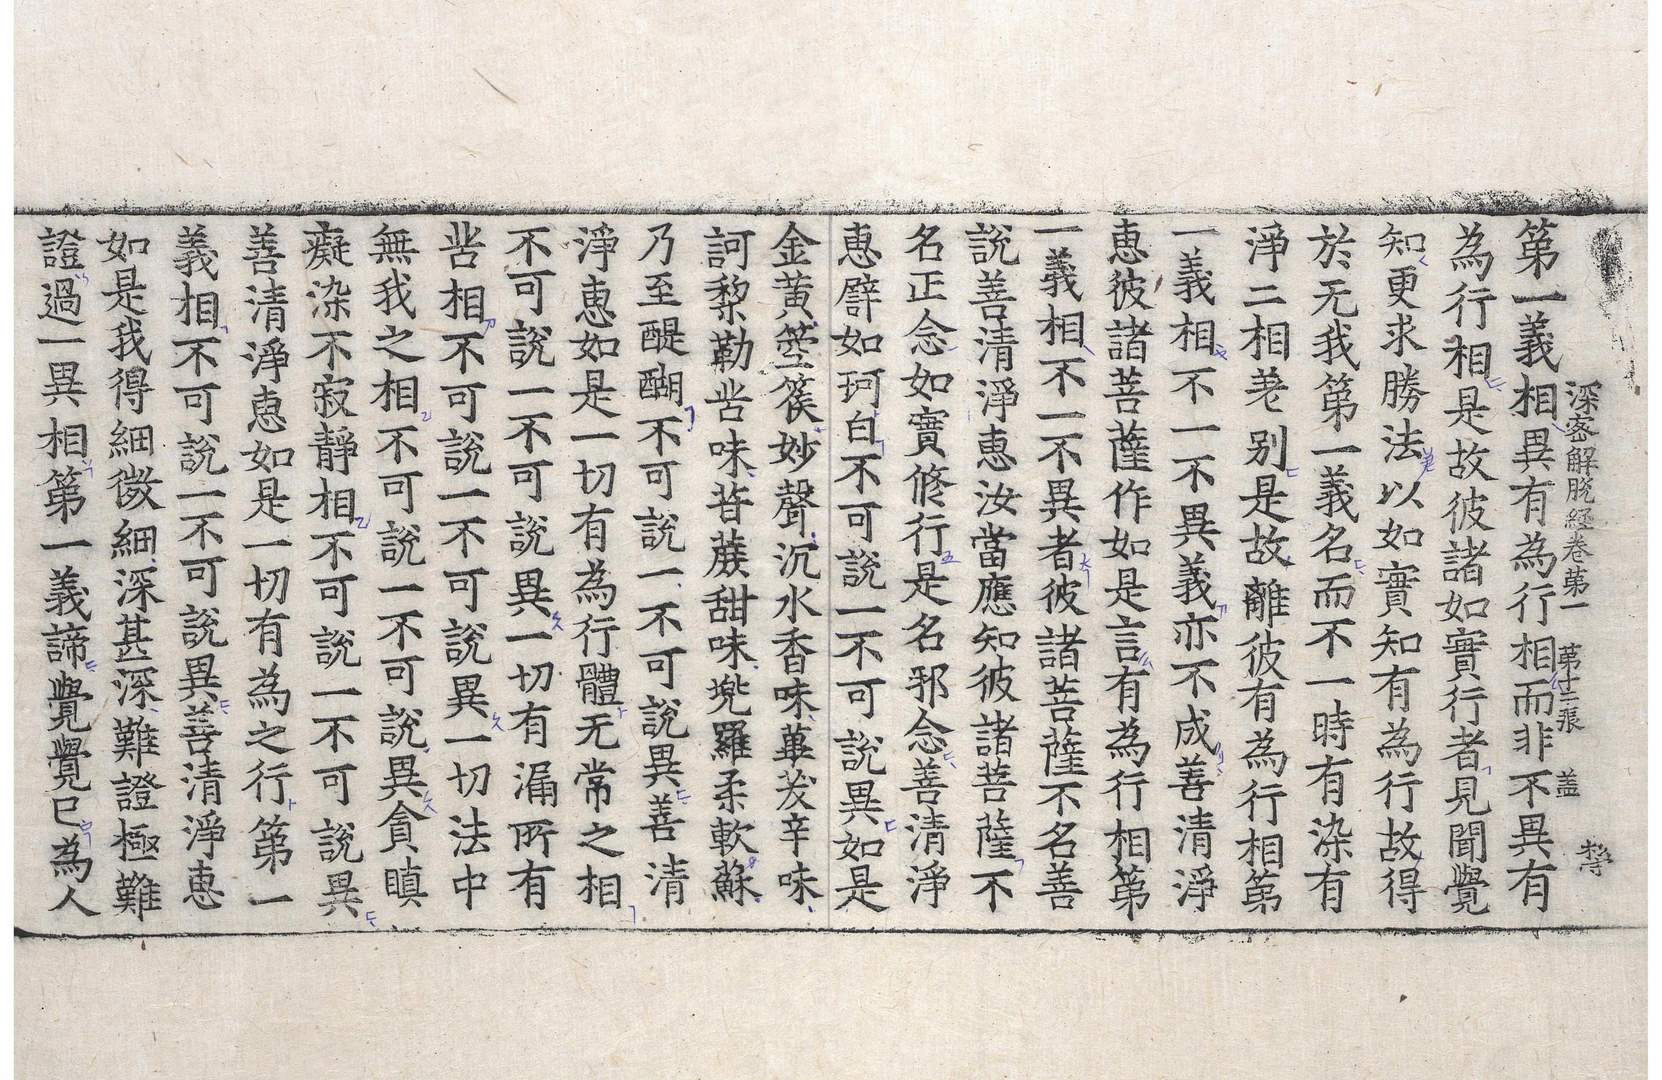 深密解脫經卷第一 第十二張 盖
第一義相異有為行相而非不異有
為行相是故彼諸如實行者見聞覺
知更求勝法以如實知有為行故得
於无我第一義名而不一時有染有
淨二相差別是故離彼有為行相第
一義相不一不異義亦不成善清淨
惠彼諸菩薩作如是言有為行相第
一義相不一不異者彼諸菩薩不名善
說善清淨惠汝當應知彼諸菩薩不
名正念如實修行是名邪念善清淨
惠譬如珂白不可說一不可說異如是
金黃箜篌妙聲沉水香味蓽茇辛味
訶梨勒苦味昔蔟甜味兠羅柔軟蘇
乃至醍醐不可說一不可說異善清
淨惠如是一切有為行體无常之相
不可說一不可說異一切有漏所有
苦相不可說一不可說異一切法中
無我之相不可說一不可說異貪瞋
癡染不寂靜相不可說一不可說異
善清淨惠如是一切有為之行第一
義相不可說一不可說異善清淨惠
如是我得細微細深甚深難證極難
證過一異相第一義諦覺覺已為人